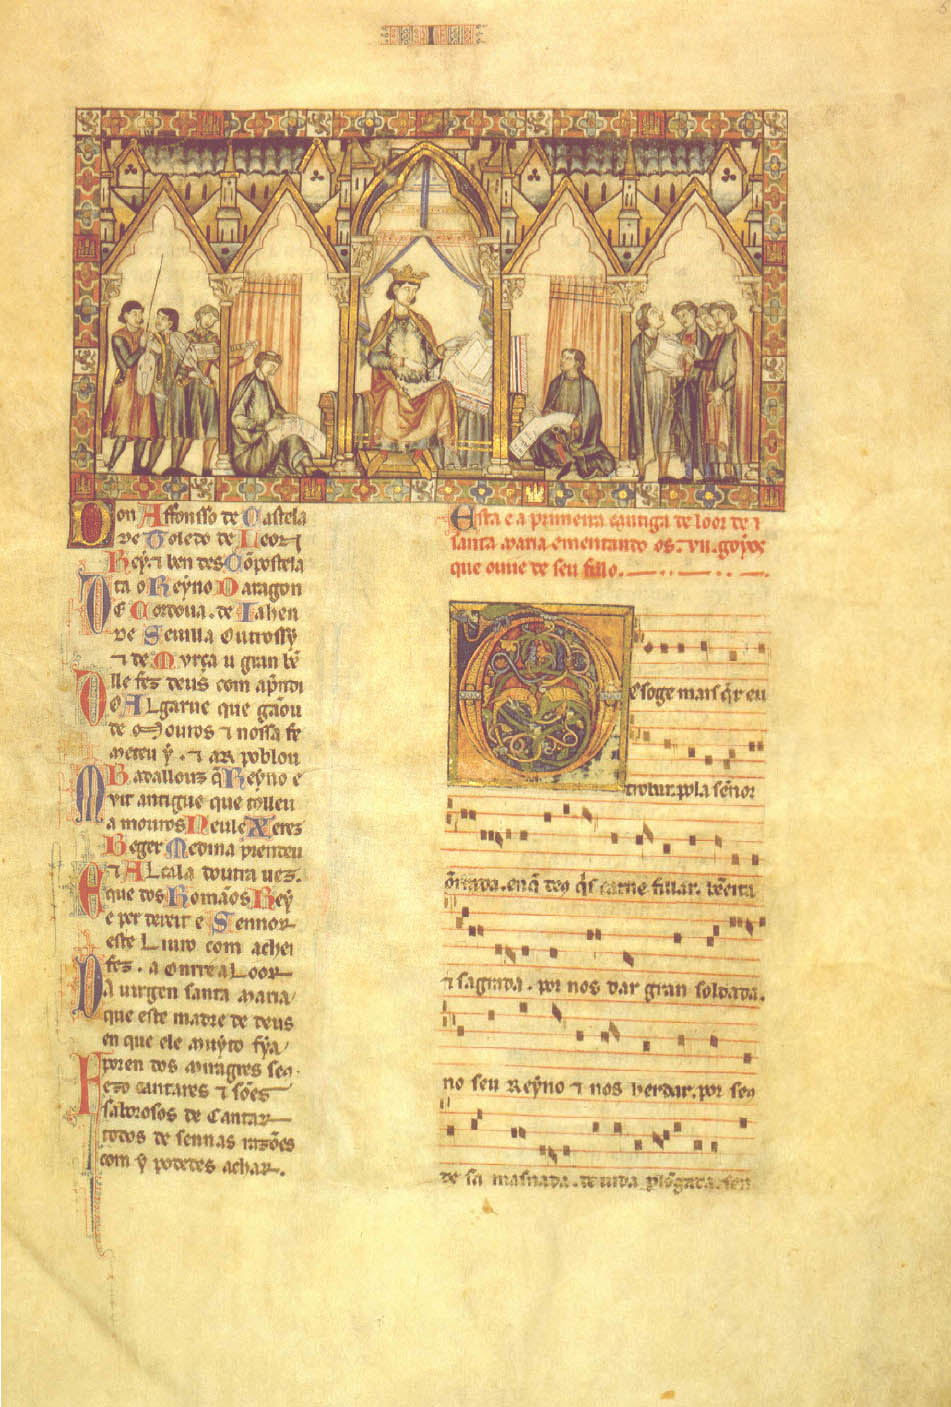 I
Don Affonsso de Castela
de Toledo de Leon ⁊
Rey ⁊ ben des Cõpostela
ta o Reyno Daragon
De Cordoua. de Iahen
de Seuilla outrossy
⁊ de Murça u gran bẽ
lle fez deus com aprndi
Do ALgarue que gãou
de Mouros ⁊ nossa fe
meteu y. ⁊ ar poblou
Badallouz q̃ Reyno e
Mui antigue que tolleu
a mouros Neule Xerez
Beger Medina prendeu
⁊ ALcala doutra uez.
Eque dos Romãos Rey
e per dereit e Sennor
este Liuro com achei
fez. a onrr e a Loor
Da uirgen santa maria
que este madre de deus
en que ele muyto fya
poren dos miragres seꝯ
Fezo cantares ⁊ sões
saborosos de Cantar
todos de sennas razões
com y podedes achar.
Esta e a primeira cantiga de loor de
santa maria ementando os. vii. goyos
que ouue de seu fillo.
Des oge mais q̃r eu
trobar. pola señor
õrrada. en q̃ deꝯ q̃s carne fillar. bẽeita
⁊ sagrada. por nos dar gran soldada.
no seu Reyno ⁊ nos herdar. por seꝯ
de sa masnada. de uida plõgada. sen